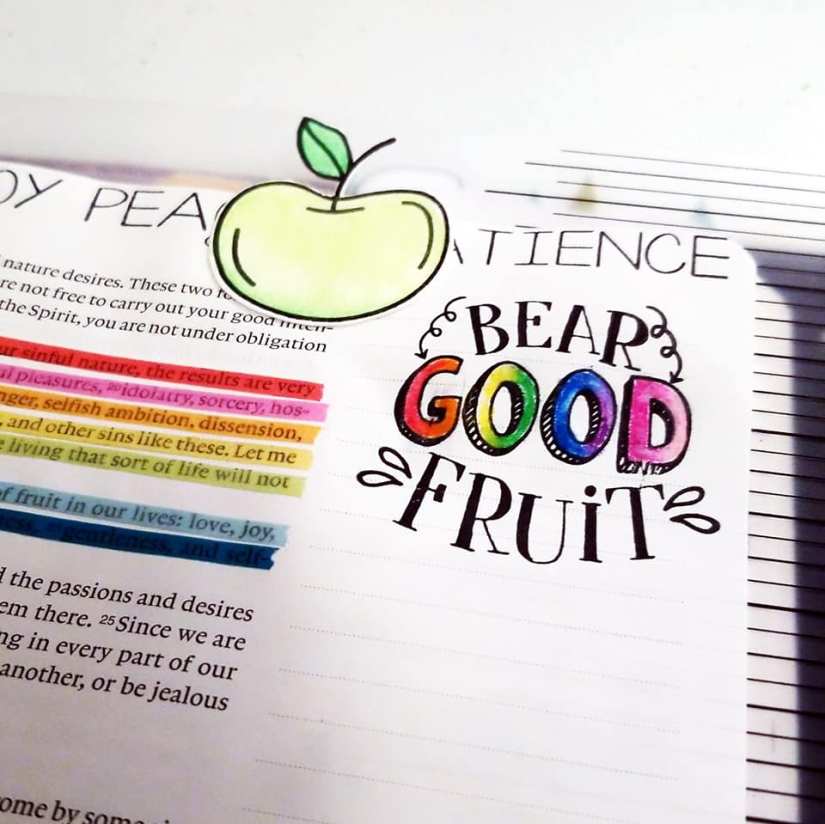 OY PEA ATIENCE
nature desires. These two
re not free to carry out your good inten-
the Spirit, you are not under obligation
ur sinful nature, the results are very
ul pleasures, ²⁰idolatry, sorcery, hos-
nger, selfish ambition, dissension,
, and other sins like these. Let me
living that sort of life will not
of fruit in our lives: love, joy,
ness, gentleness, and self-
d the passions and desires
em there. ²⁵Since we are
ng in every part of our
another, or be jealous
ome by som
BEAR
GOOD
FRUiT